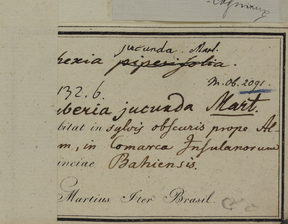 jucunda. Mart.
hexia piperifolia.
M. Ob. 2091.
132. 6.
beria jucunda Mart.
bitat in sylvis obscuris prope Al-
m, in Comarca Insulanorum
inciae Bahiensis.
Martius Iter Brasil.